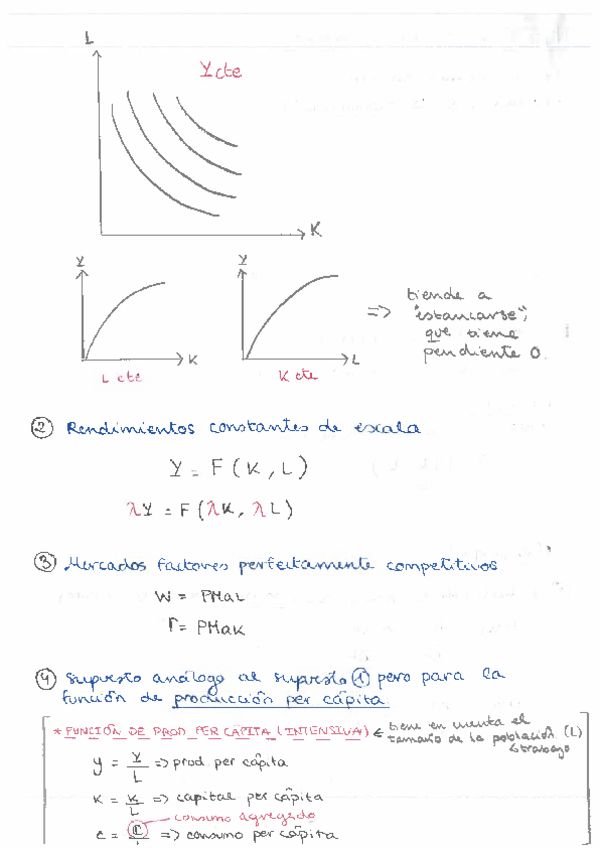 L
Y cte
K
Y
K
L cte
Y
L
K cte
=> tiende a
"estancarse",
que tiene
pendiente 0.
② Rendimientos constantes de escala
Y = F(K, L)
λY = F(λK, λL)
③ Mercados factores perfectamente competitivos
W = PMaL
r = PMaK
④ Supuesto análogo al supuesto ① pero para la
función de producción per cápita
* FUNCIÓN DE PROD PER CÁPITA (INTENSIVA) ← tiene en cuenta el
tamaño de la población (L)
↳ trabajo
y = Y/L => prod. per cápita
k = K/L => capital per cápita
consumo agregado
c = C/L => consumo per cápita